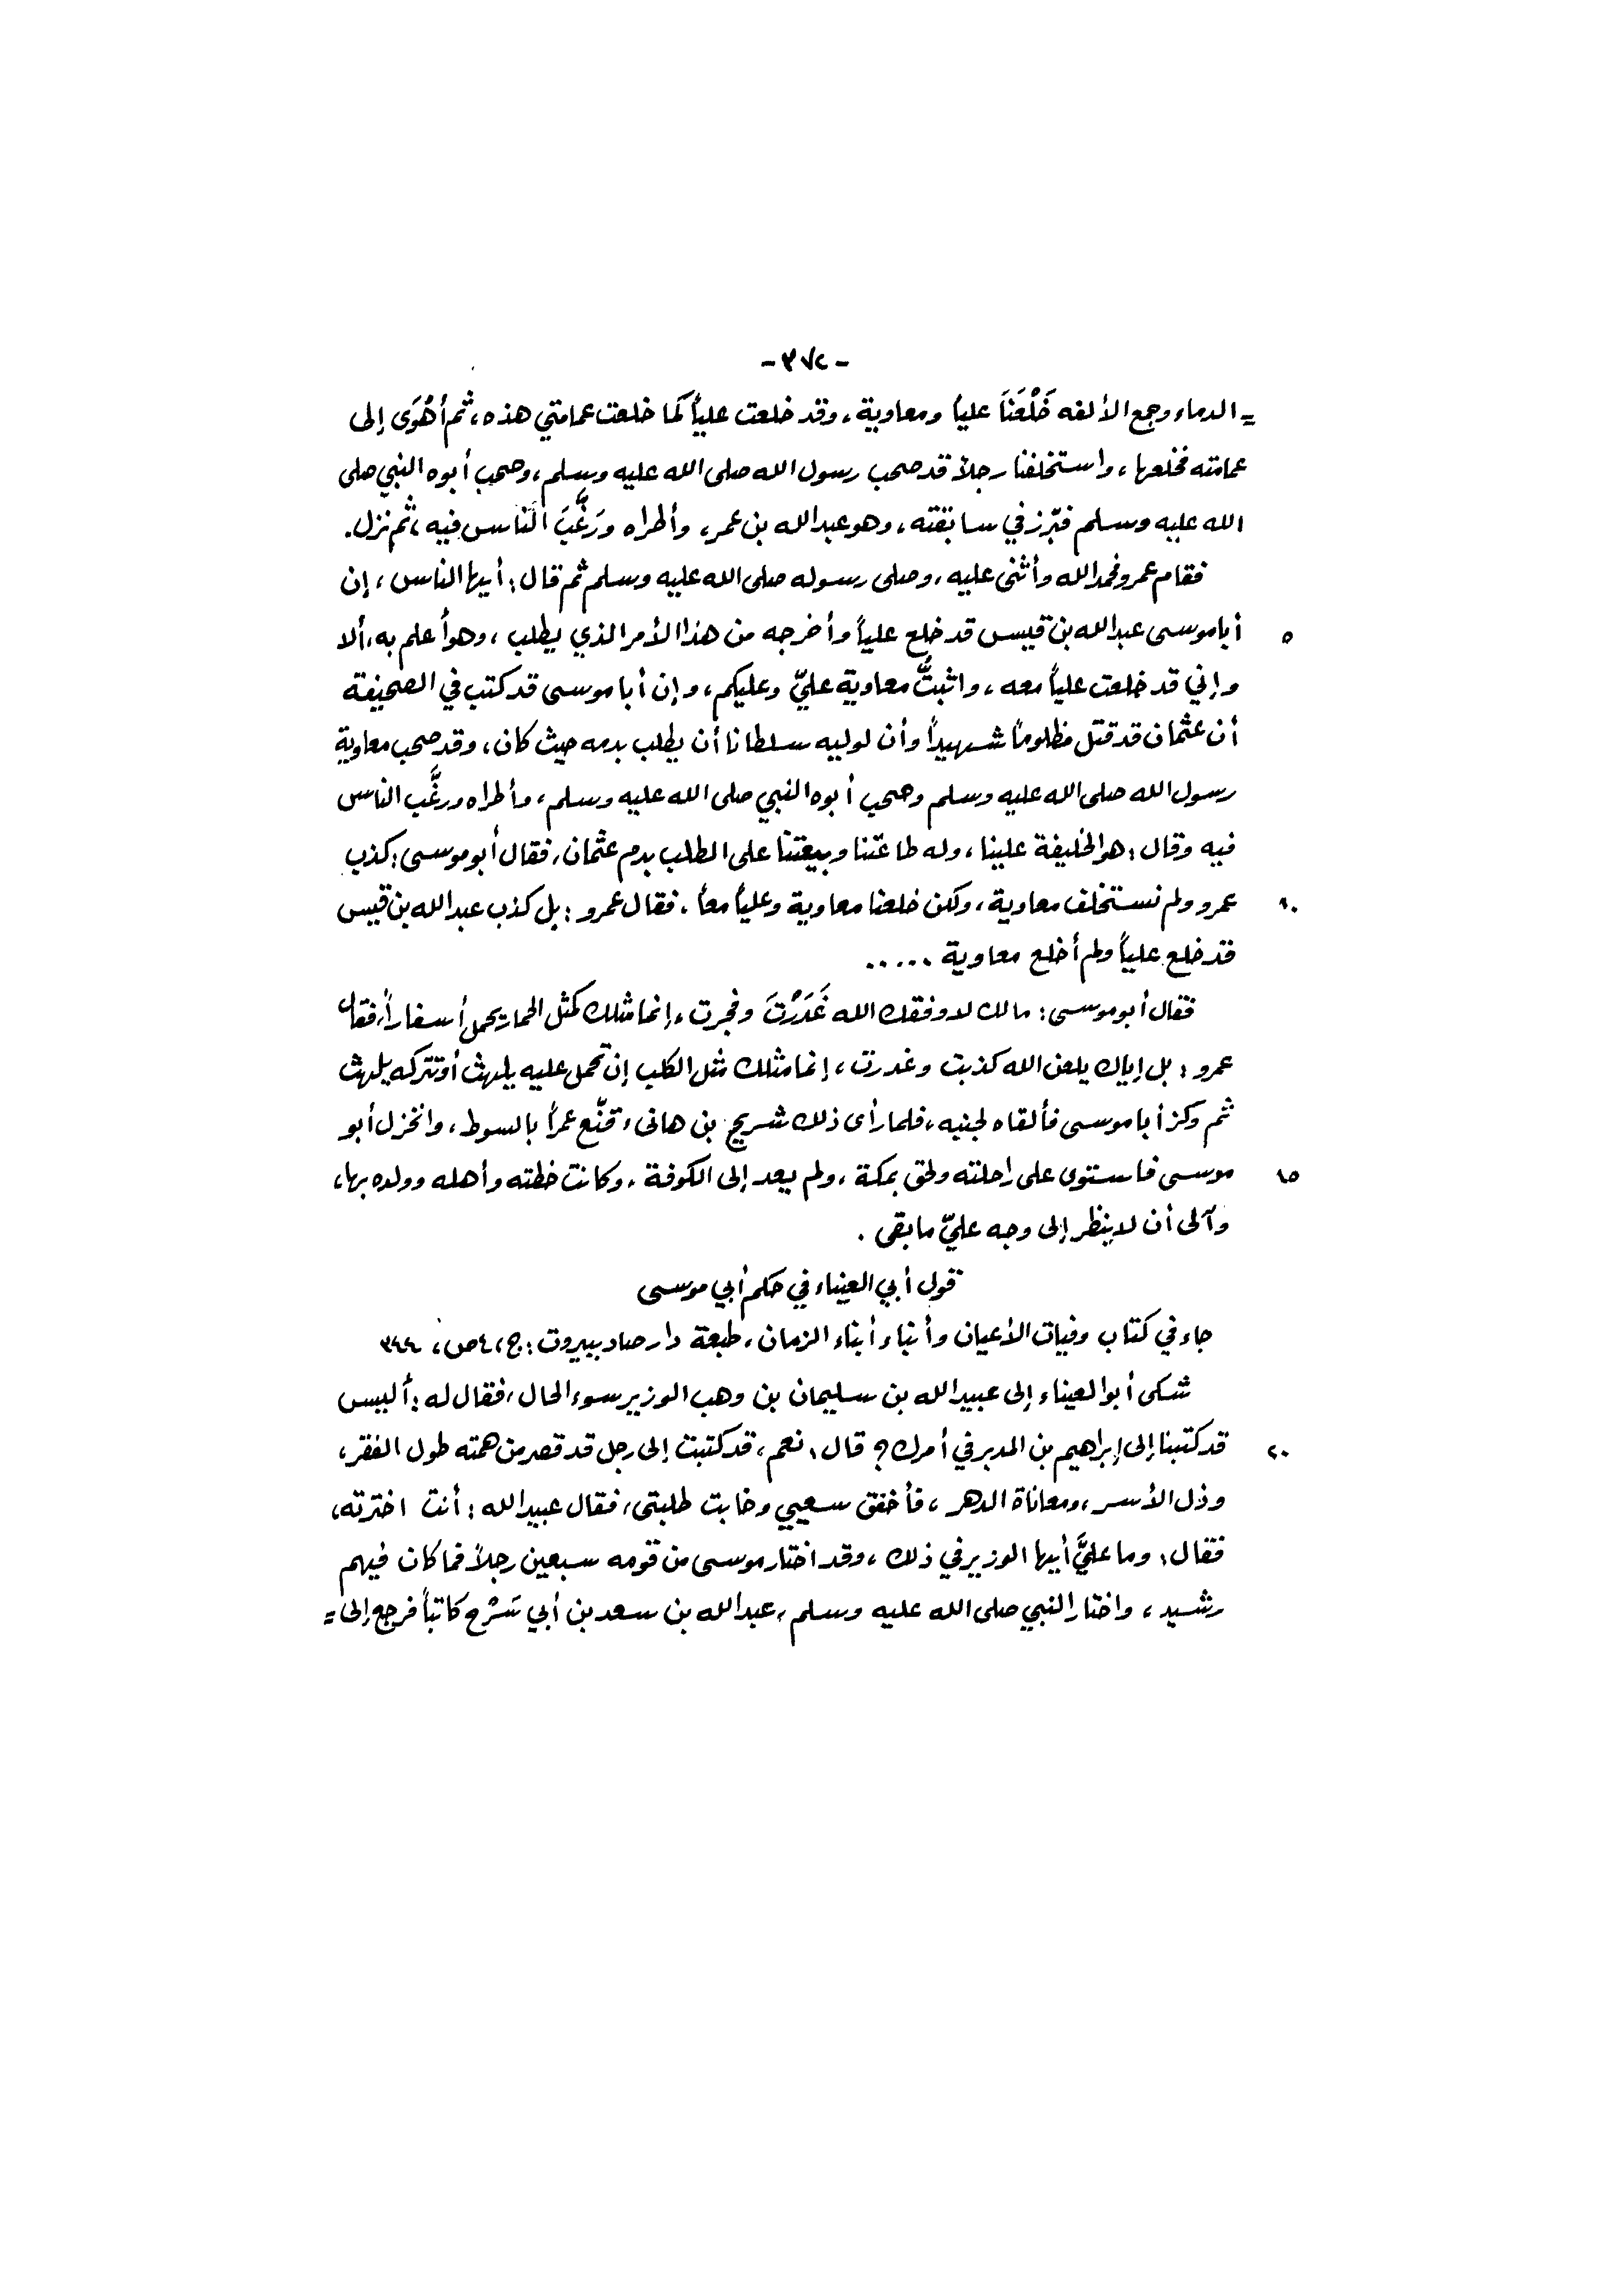 - ٣٧٢ -
= الدماء وجمع الألفه خَلْعَنَا علياً ومعاوية، وقد خلعت علياً كما خلعت عمامتي هذه، ثم أهْوَى إلى
عمامته فخلعها، واستخلفنا رجلاً قد صحب رسول الله صلى الله عليه وسلم، وصحب أبوه النبي صلى
الله عليه وسلم فبّرز في سابقته، وهو عبدالله بن عمر، وأطراه ورَغَّبَ النَاس فيه، ثم نزل.
فقام عمرو فحمدالله وأثنى عليه، وصلى رسوله صلى الله عليه وسلم ثم قال: أيها الناس، إن
٥ أباموسى عبدالله بن قيس قد خلع علياً وأخرجه من هذا الأمر الذي يطلب، وهو أعلم به، ألا
وإني قد خلعت علياً معه، واثبتُّ معاوية عليّ وعليكم، وإن أبا موسى قد كتب في الصحيفة
أن عثمان قد قتل مظلوماً شهيداً وأن لوليه سلطانا أن يطلب بدمه حيث كان، وقد صحب معاوية
رسول الله صلى الله عليه وسلم وصحب أبوه النبي صلى الله عليه وسلم، وأطراه ورغَّب الناس
فيه وقال: هو الخليفة علينا، وله طاعتنا وبيعتنا على الطلب بدم عثمان، فقال أبو موسى: كذب
١٠ عمرو ولم نستخلف معاوية، ولكن خلعنا معاوية وعلياً معاً. فقال عمرو: بل كذب عبدالله بن قيس
قد خلع علياً ولم أخلع معاوية .....
فقال أبو موسى: مالك لا وفقك الله غَدَرْتَ وفجرت، إنما مثلك كمثل الحمار يحمل أسفاراً، فقال
عمرو: بل إياك يلعن الله كذبت وغدرت، إنما مثلك مثل الكلب إن تحمل عليه يلهث أو تتركه يلهث
ثم وكز أبا موسى فألقاه لجنبه، فلما رأى ذلك شريح بن هانئ قنّع عمراً بالسوط، وانخزل أبو
١٥ موسى فاستوى على راحلته ولحق بمكة، ولم يعد إلى الكوفة، وكانت خطته وأهله وولده بها،
وآلى أن لا ينظر إلى وجه عليّ ما بقي.
قول أبي العيناء في حكم أبي موسى
جاء في كتاب وفيات الأعيان وأنباء أبناء الزمان، طبعة دار صاد ببيروت: ج، ٤ ص، ٣٤٤
شكى أبو العيناء إلى عبيدالله بن سليمان بن وهب الوزير سوء الحال، فقال له: أليس
٢٠ قد كتبنا إلى إبراهيم بن المدبر في أمرك؟ قال: نعم، قد كتبت إلى رجل قد قصر من همته طول الفقر،
وذل الأسر، ومعاناة الدهر، فأخفق سعيي وخابت طلبتي، فقال عبيدالله: أنت اخترته،
فقال: وما عليَّ أيها الوزير في ذلك، وقد اختار موسى من قومه سبعين رجلاً فما كان فيهم
رشيد، واختار النبي صلى الله عليه وسلم، عبدالله بن سعد بن أبي سَرْح كاتباً فرجع إلى =